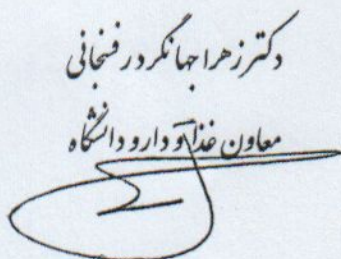 دکتر زهرا جهانگرد رفسنجانی
معاون غذا و دارو دانشگاه